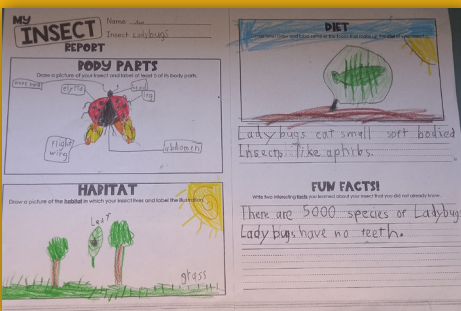 MY
INSECT
REPORT
Name
Insect Ladybugs
BODY PARTS
Draw a picture of your insect and label at least 5 of its body parts.
head
leg
flight
wing
abdomen
HABITAT
Draw a picture of the habitat in which your insect lives and label the illustration.
Leaf
grass
DIET
Lady bugs eat small soft bodied
Insects like aphibs.
FUN FACTS!
Write two interesting facts you learned about your insect that you did not already know.
There are 5000 species of Ladybugs
Lady bugs have no teeth.